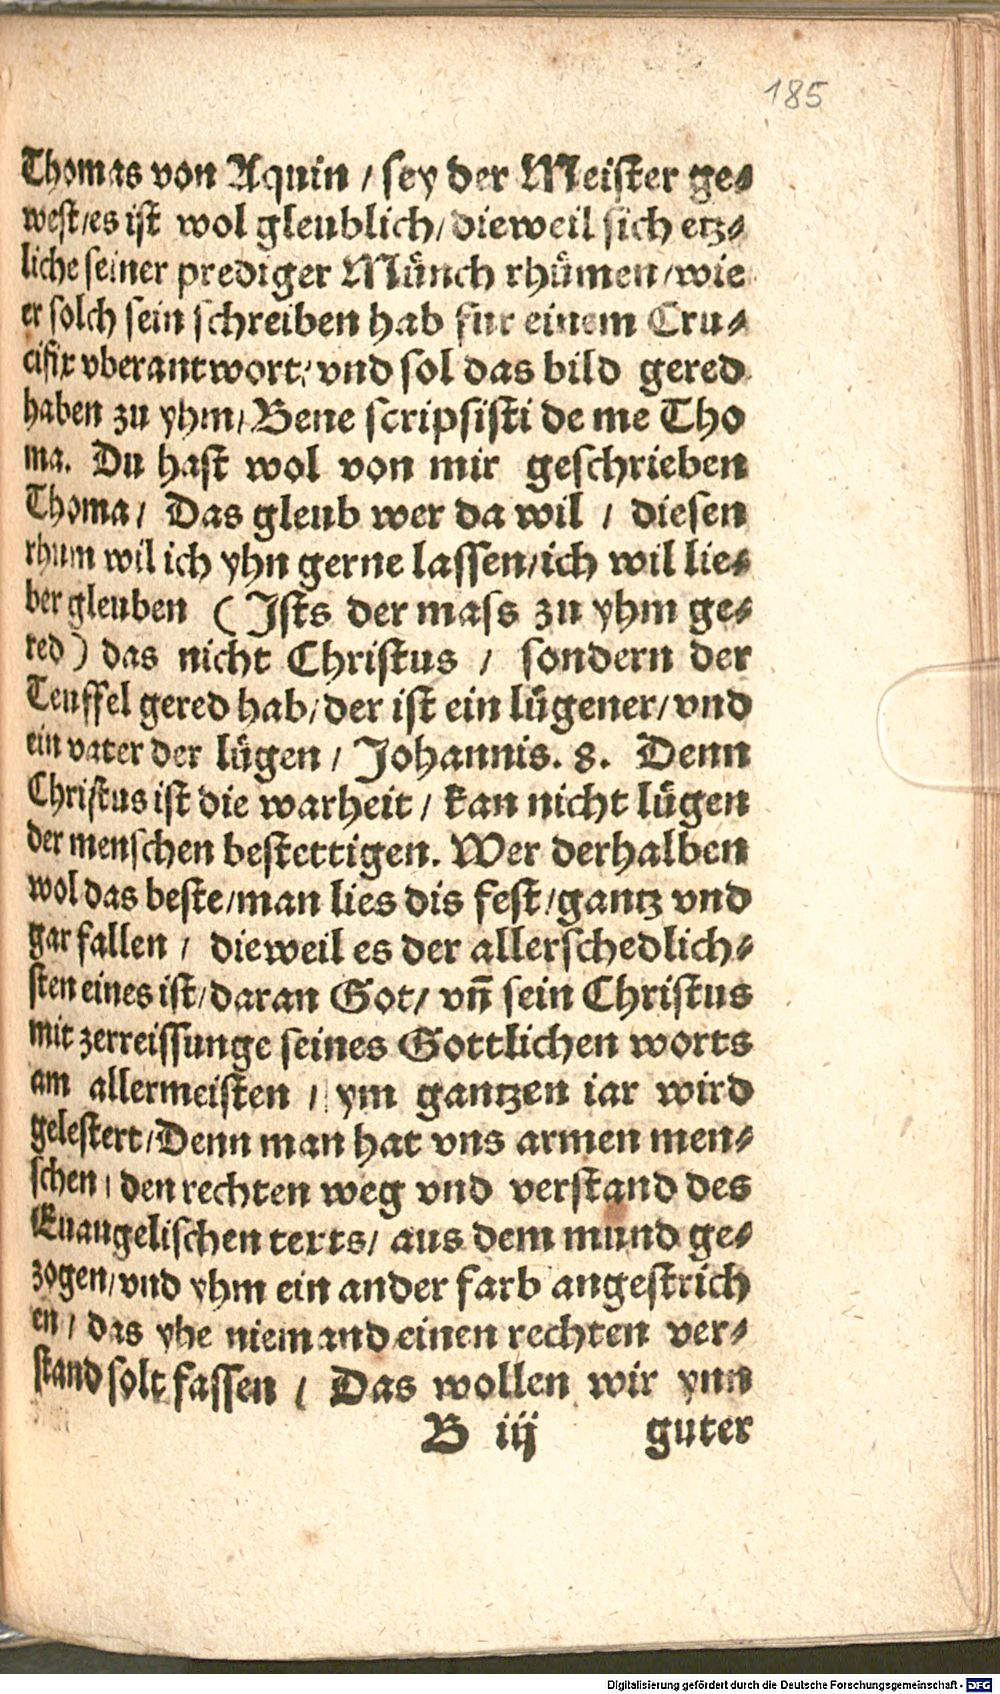 185
Thomas von Aquin / sey der Meister ge⸗
west/es ist wol gleublich/dieweil sich etz⸗
liche seiner prediger Münch rhümen/wie
er solch sein schreiben hab fur einem Cru⸗
cifix vberantwort/vnd sol das bild gered
haben zu yhm/Bene scripsisti de me Tho
ma. Du hast wol von mir geschrieben
Thoma/ Das gleub wer da wil / diesen
rhum wil ich yhn gerne lassen/ich wil lie⸗
ber gleuben (Ists der mass zu yhm ge⸗
red) das nicht Christus / sondern der
Teuffel gered hab/der ist ein lügener/vnd
ein vater der lügen / Johannis. 8. Denn
Christus ist die warheit / kan nicht lügen
der menschen bestettigen. Wer derhalben
wol das beste/man lies dis fest/gantz vnd
gar fallen / dieweil es der allerschedlich⸗
sten eines ist/daran Got/ vñ sein Christus
mit zerreissunge seines Gottlichen worts
am allermeisten / ym gantzen iar wird
gelestert/Denn man hat vns armen men⸗
schen/den rechten weg vnd verstand des
Euangelischen texts/ aus dem mund ge⸗
zogen/vnd yhm ein ander farb angestrich
en/ das yhe niemand einen rechten ver⸗
stand solt fassen / Das wollen wir ynn
B iij guter
Digitalisierung gefördert durch die Deutsche Forschungsgemeinschaft - DFG